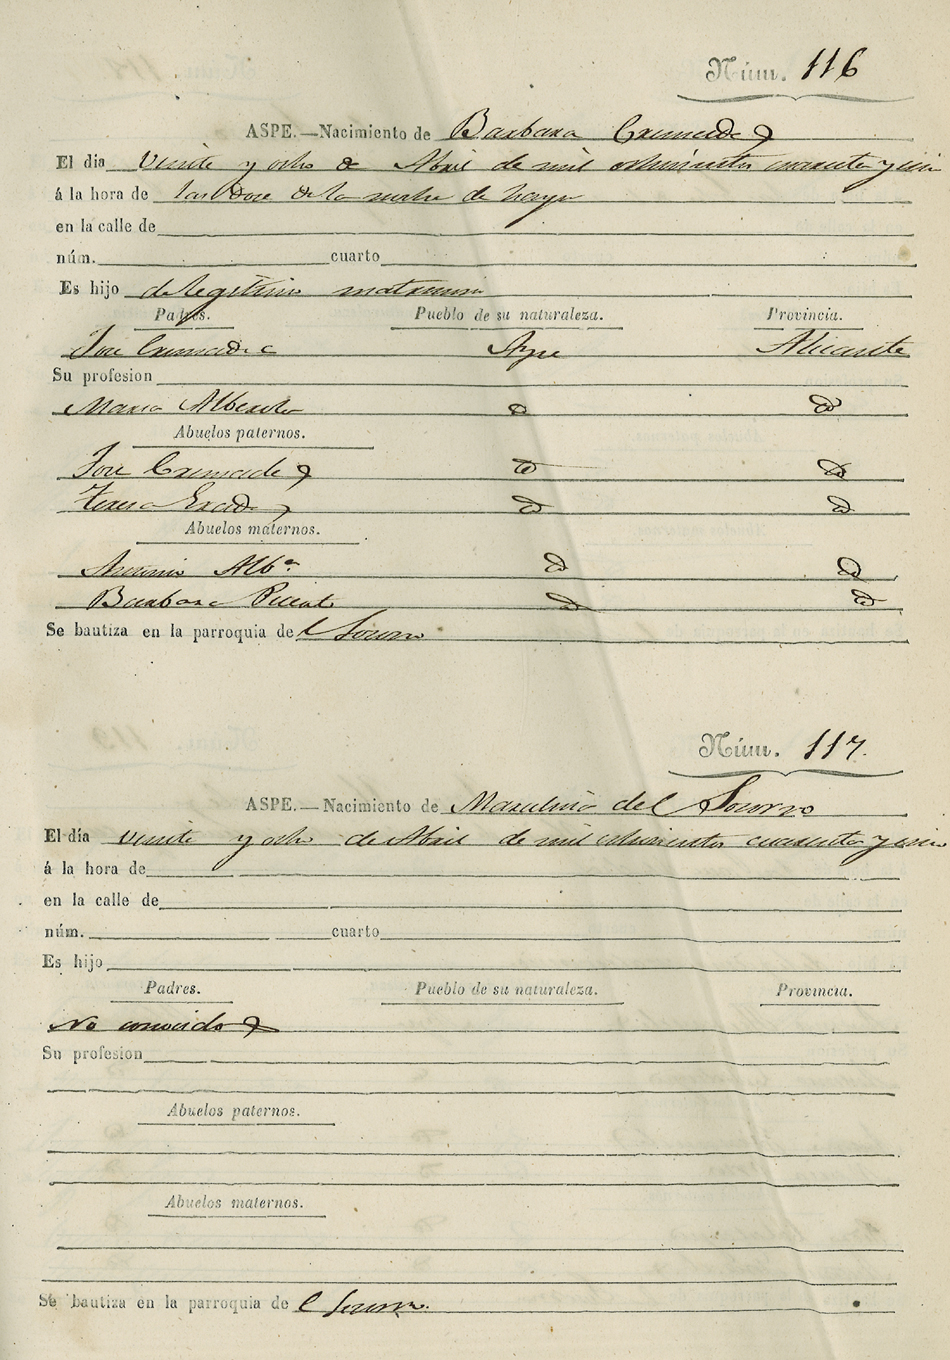 Núm. 116
ASPE.—Nacimiento de Barbara Cremades
El dia veinte y ocho de Abril de mil ochocientos cuarenta y
á la hora de las doce de la noche de
en la calle de
núm. cuarto
Es hijo de legitimo matrimonio
Padres. Pueblo de su naturaleza. Provincia.
Jose Cremades Aspe Alicante
Su profesion
Maria Alberola
Abuelos paternos.
Jose Cremades
Teresa
Abuelos maternos.
Antonio Alb.ª
Barbara
Se bautiza en la parroquia del Socorro
Núm. 117.
ASPE.—Nacimiento de del Socorro
El día veinte y ocho de Abril de mil ochocientos cuarenta y
á la hora de
en la calle de
núm. cuarto
Es hijo
Padres. Pueblo de su naturaleza. Provincia.
No conocidos
Su profesion
Abuelos paternos.
Abuelos maternos.
Se bautiza en la parroquia de l Socorro.